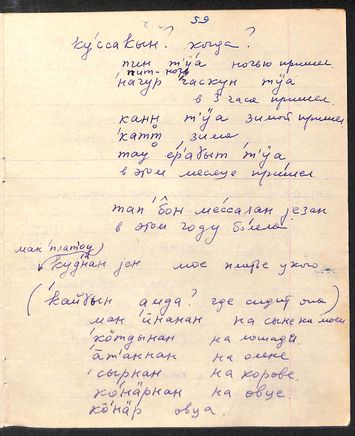 59
ку́ссакын? когда?
пин т'ӱа ночью пришел.
пит-ночь
на́гур часкун тӱа
в 3 часа пришел.
канн т'ӱа зимой пришел
катт зима
тау ера́быт т'ӱа
в этом месяце пришел.
тап бон ме́ссалан jезан
в этом году было
ман платоу
куднан jен мое платье узкое
(кайбын амда? где сидит она)
ман на сыне на мосе
кӧтдынан на лошади.
āт'аннан на олене
сырнан на корове.
ко́нäрнан на овце.
ко́нäр овца.